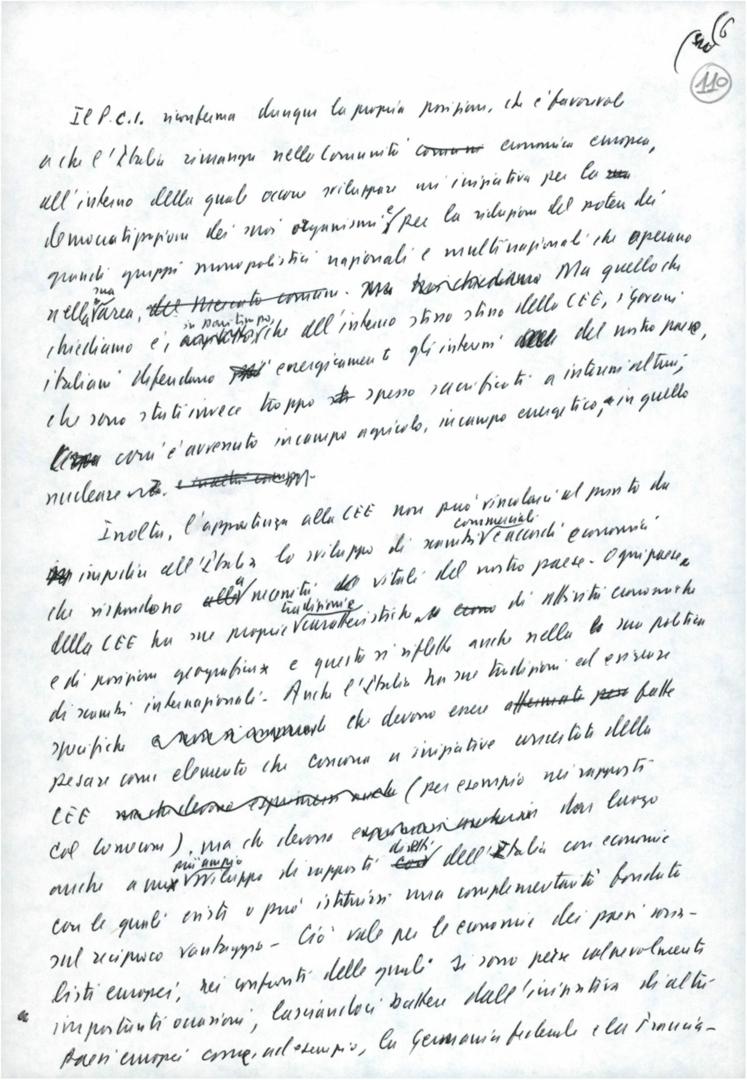 6
110
Il P.C.I. riconferma dunque la propria posizione, che è favorevole
a che l'Italia rimanga nella Comunità economica europea,
all'interno della quale occorre sviluppare un'iniziativa per la
democratizzazione dei suoi organismi e per la riduzione del potere dei
grandi gruppi monopolistici nazionali e multinazionali che operano
nella sua area. Ma quello che
chiediamo è, in pari tempo, che all'interno stesso della CEE, i governi
italiani difendano energicamente gli interessi del nostro paese,
che sono stati invece troppo spesso sacrificati a interessi altrui,
com'è avvenuto in campo agricolo, in campo energetico, in quello
nucleare
Inoltre, l'appartenenza alla CEE non può vincolarci al punto da
impedire all'Italia lo sviluppo di scambi commerciali e accordi economici
che rispondono a necessità vitali del nostro paese. Ogni paese
della CEE ha sue proprie tradizioni e caratteristiche di attività economiche
e di posizione geografica e questo si riflette anche nella sua politica
di scambi internazionali. Anche l'Italia ha sue tradizioni ed esigenze
specifiche che devono essere fatte
pesare come elemento che concorra a iniziative concertate della
CEE (per esempio nei rapporti
col Comecon), ma che devono dar luogo
anche a un più ampio sviluppo di rapporti diretti dell'Italia con economie
con le quali esiste o può istituirsi una complementarità fondata
sul reciproco vantaggio. Ciò vale per le economie dei paesi socia-
listi europei, nei confronti delle quali si sono perse colpevolmente
importanti occasioni, lasciandoci battere dall'iniziativa di altri
paesi europei come, ad esempio, la Germania federale e la Francia.